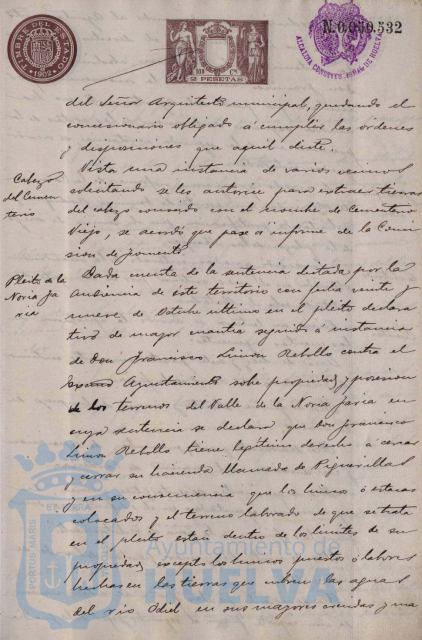 TIMBRE DEL ESTADO
1902
100 Cs.
2 PESETAS
N.0.050.532
ALCALDIA CONSTITUCIONAL DE HUELVA
del Señor Arquitecto municipal, quedando el
concesionario obligado á cumplir las órdenes
y disposiciones que aquel dicte.
Cabezo
del Cemen
terio
Vista una instancia de varios vecinos
solicitando se les autorice para extraer tierras
del cabezo conocido con el nombre de Cementerio
Viejo, se acordó que pase á informe de la Comi
sion de fomento
Pleito de la
Noria Ja
ria
Dada cuenta de la sentencia dictada por la
Audiencia de este territorio con fecha veinte y
nueve de Octubre último en el pleito declara
tivo de mayor cuantía seguido á instancia
de Don Francisco Limon Rebollo contra el
Excmo Ayuntamiento sobre propiedad y posesion
de los terrenos del Valle de la Noria Jaria en
cuya sentencia se declara que Don Francisco
Limon Rebollo tiene legítimo derecho á cercar
y cerrar su hacienda llamada de Higuerillas
y en su consecuencia que los lineos ó estacas
colocados y el terreno laborado de que se trata
en el pleito están dentro de los limites de su
propiedad, excepto los lineos puestos ó labores
hechas en las tierras que cubren las aguas
del rio Odiel en sus mayores crecidas y ma
PORTUS MARIS
ET TERRAE
Ayuntamiento de
HUELVA